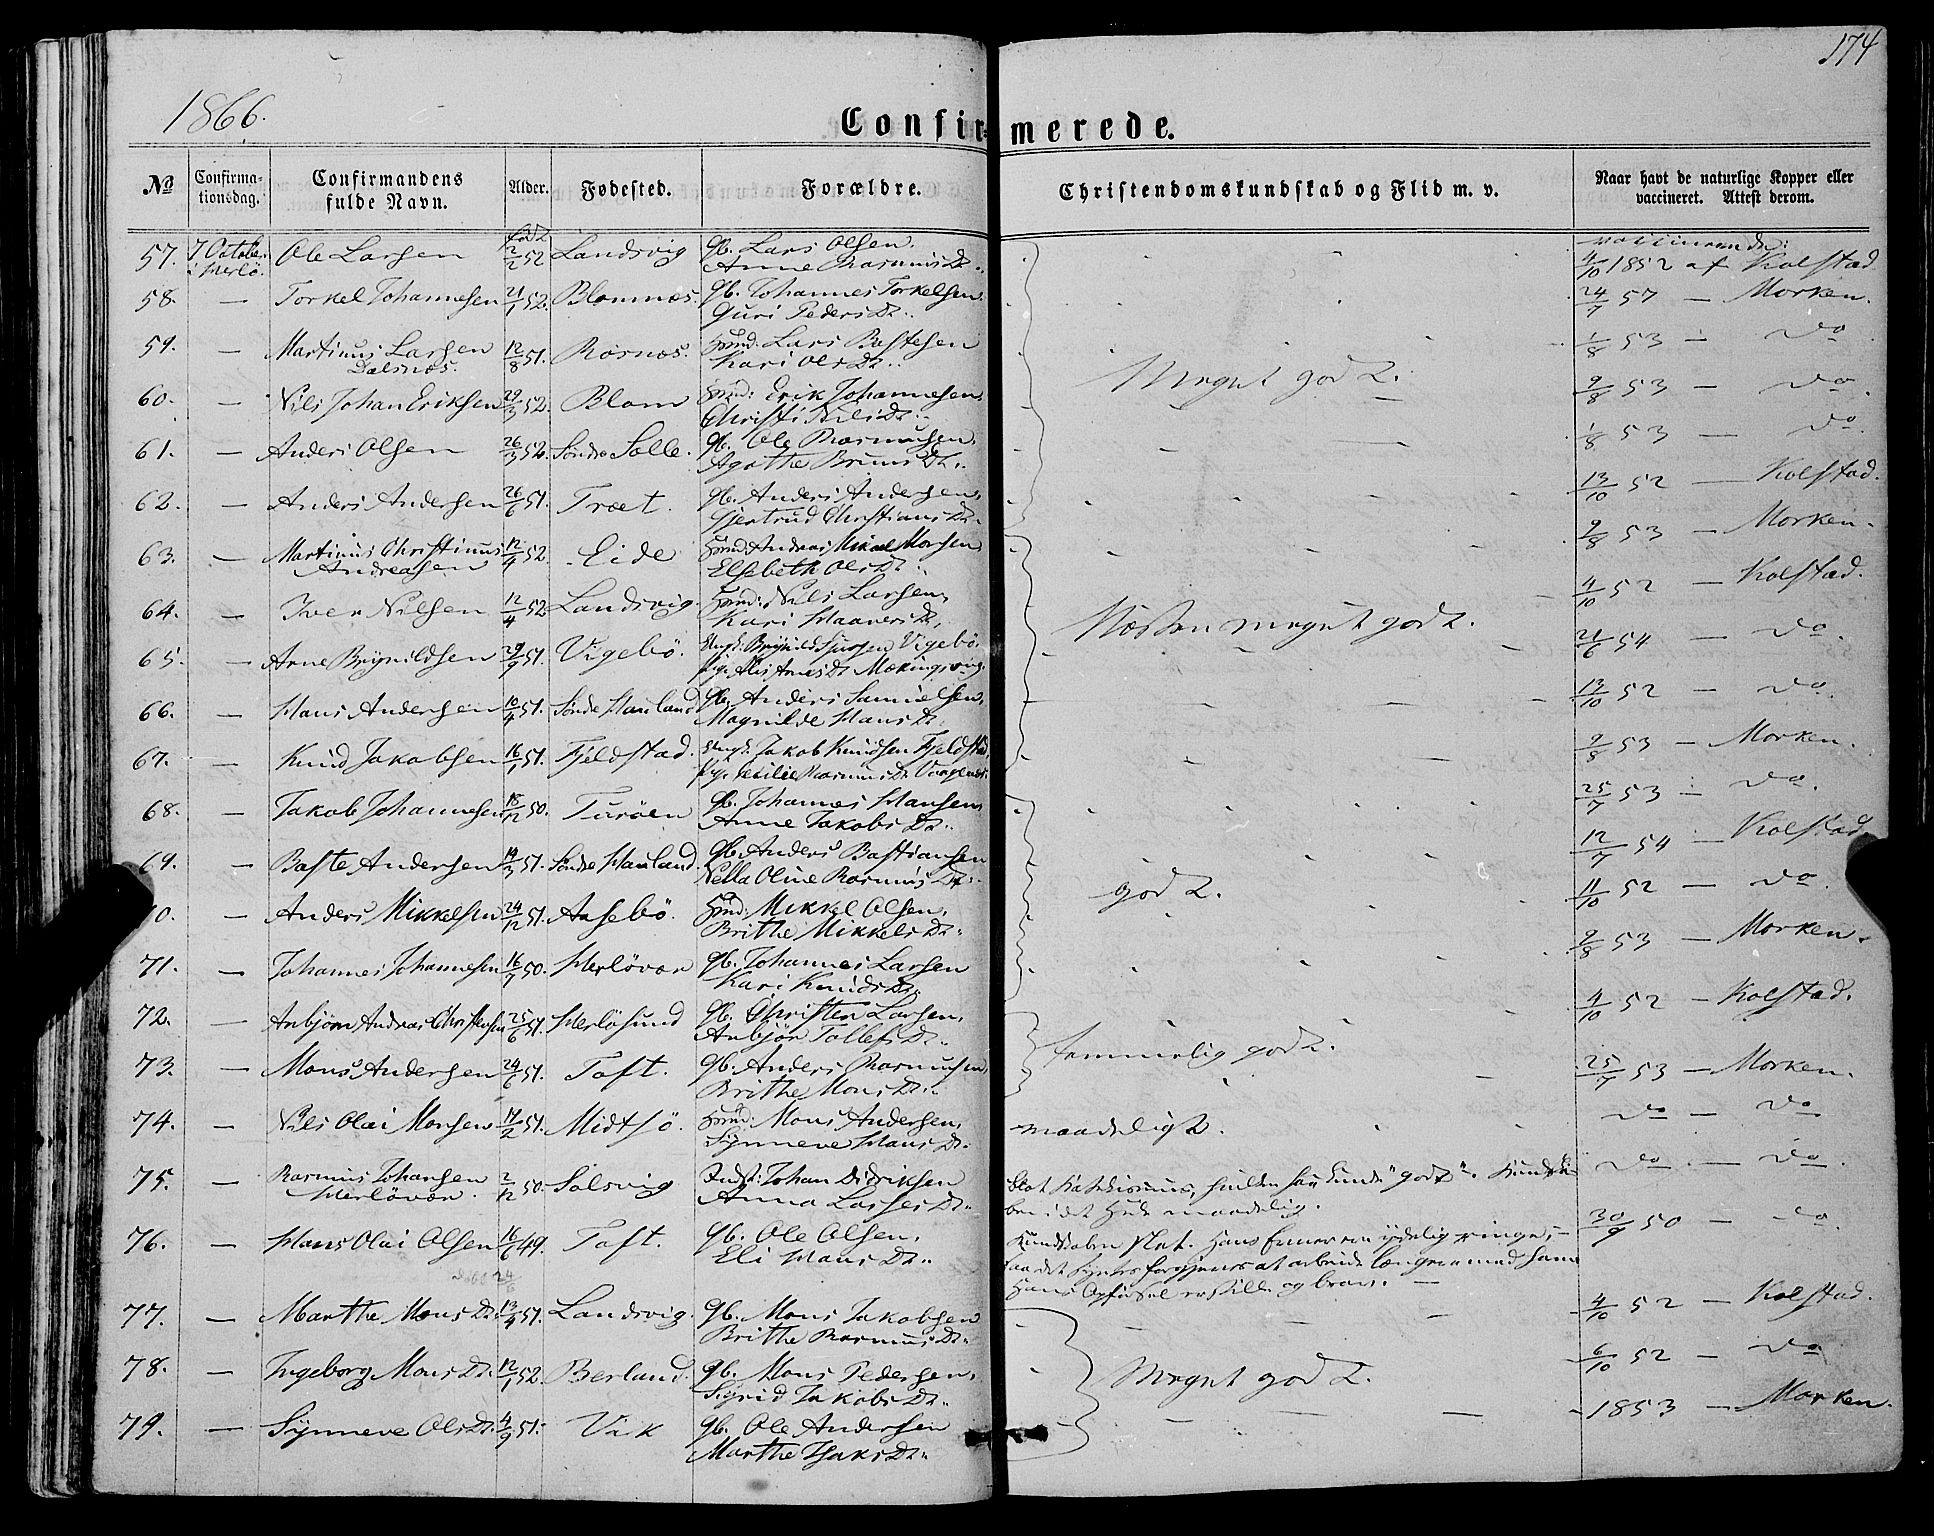 174
1866.
Confirmerede.
No
Confirmationsdag.
Confirmandens fulde Navn.
Alder.
Fødested.
Forældre.
Christendomskundskab og Flid m. v.
Naar havt de naturlige Kopper eller vaccineret. Attest derom.
57. 7 October i Herlö. Ole Larsen född 2/2 52 Landsvig Gb. Lars Olsen. Anne Rasmus Dt. 4/10 1852 af Kolstad
58. — Torkel Johannesen 21/1 52. Blomnæs. Gb. Johannes Torkelsen. Guri Peders Dt. 24/7 57 — Morken.
59. — Martinus Larsen Dalsnæs. 12/8 51. Rosnæs. Lars Bastesen Kari Ols Dt. 1/8 53 — Do
Meget godt.
60. — Nils Johan Eriksen 29/3 52. Blom Erik Johannesen, Christi Nils Dt. 9/8 53 — Do
61. — Anders Olsen 26/3 52. Söndre Solle. Gb. Ole Rasmussen, Agathe Bruns Dt. 1/8 53 — Do
62. — Anders Andersen 26/6 51. Træt. Gb. Anders Andersen, Gjertrud Christians Dt. 13/10 52 — Kolstad.
63. — Martinus Christinus Andreasen 12/4 52. Eide Andreas Mikal Monsen Elsebeth Ols Dt. 9/8 53 — Morken.
64. — Iver Nilsen 12/4 52 Landsvig. Nils Larsen, Kari Haavers Dt. 4/10 52 — Kolstad.
Næsten meget godt.
65. — Arne Brynildsen 29/9 51. Vigebö. Ungk. Brynild Sjursen Vigebö. Pig. Alis Arnes Dt. 21/6 54 — Do
66. — Hans Andersen 10/4 51. Söndre Hauland Gb. Anders Samuelsen, Magnilde Hans Dt. 13/10 52 — Do
67. — Knud Jakobsen 16/1 51. Fjeldstad. Ungk. Jakob Knudsen Fjeldstad, Pig. Cecilie Rasmus Dt. 9/8 53 — Morken.
68. — Jakob Johannesen 18/12 50. Turöen Gb. Johannes Hansen, Anne Jakobs Dt. 25/7 53 — Do.
69. — Baste Andersen 14/3 51. Söndre Hauland. Gb. Anders Bastiansen Nella Oline Rasmus Dt. 12/7 54 — Kolstad
godt.
70. — Anders Mikkelsen 24/12 51. Aasebö. Mikkel Olsen, Brithe Mikkels Dt. 11/10 52 — Do.
71. — Johannes Johannesen 16/7 50. Herlövær Gb. Johannes Larsen Kari Knuds Dt. 9/8 53 — Morken.
72. — Anbjörn Andreas Christensen 25/6 51. Herlösund Gb. Christen Larsen, Anbjör Tollefs Dt. 4/10 52 — Kolstad.
temmelig godt.
73. — Mons Andersen 24/6 51. Toft. Gb. Anders Rasmussen, Brithe Mons Dt. 25/7 53 — Morken.
74. — Nils Olai Monsen 17/2 51. Midtsö. Mons Andersen, Synneve Hans Dt. maadeligt. Do — Do
75. — Rasmus Johansen Herlövær. 2/12 50. Solsvig Indst: Johan Didriksen Anna Lasses Dt. Do — Do.
blot Katekismus, hvilken han kunde "godt". Kundskaben i det Hele maadelig.
76. — Hans Olai Olsen 16/6 49. Toft. Gb. Ole Olsen, Eli Hans Dt. 30/9 50 — Do.
Kundskaben slet. Hans Evner ere ydelig ringe, — saa det syntes forgjæves at arbeide længere med ham
Hans Opförsel er stille og brav. —
77. — Marthe Mons Dt. 13/4 51. Landsvig. Gb. Mons Jakobsen Brithe Rasmus Dt. 4/10 52 — Kolstad.
78. — Ingeborg Mons Dt. 12/1 52. Berland. Gb. Mons Pedersen, Sigrid Jakobs Dt. 6/10 52 — Do
Meget godt.
79. — Synneve Ols Dt. 4/9 51. Vik Gb. Ole Andersen Marthe Isaks Dt. 1853 — Morken.